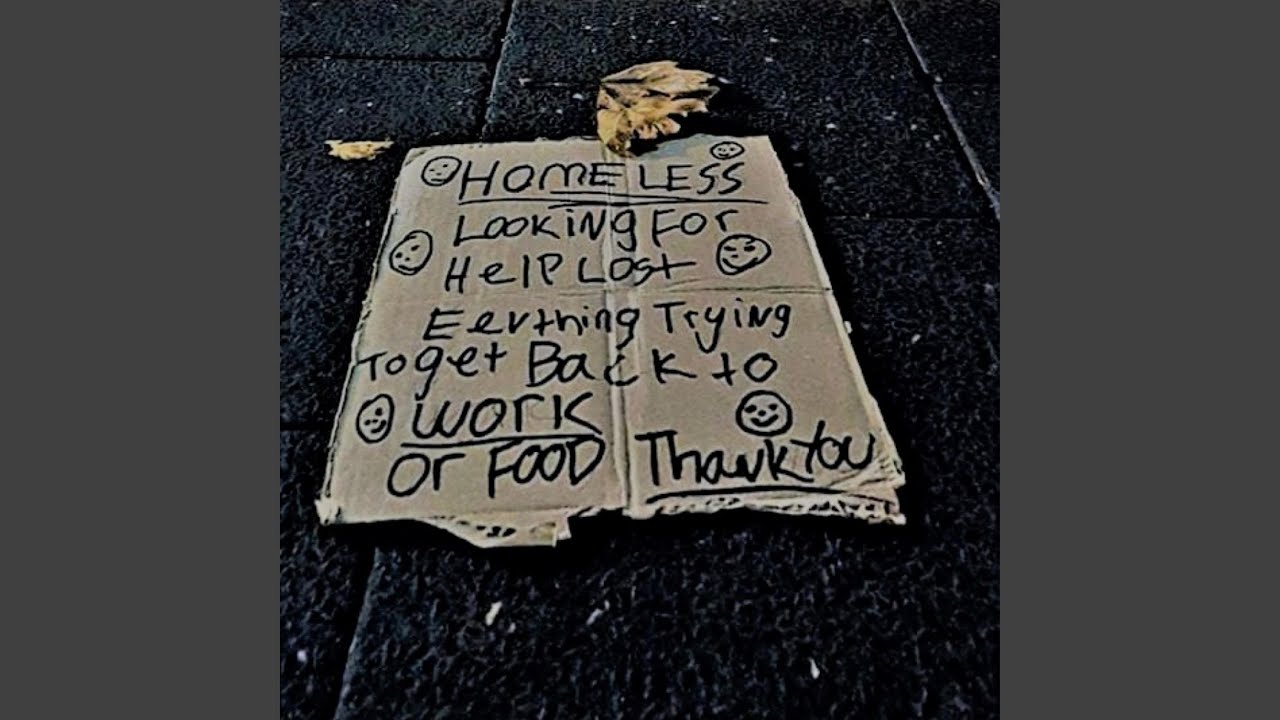 HOMELESS
LOOKiNg FOr
HelP LOST
EerthiNg TryiNg
TO get Back to
WORK
Or FOOD Thank You